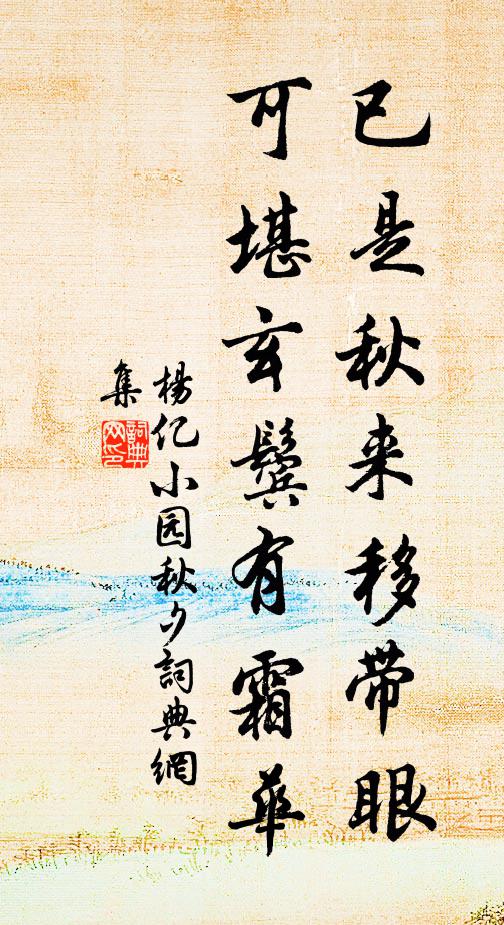 已是秋来移带眼
可堪玄鬓有霜华
杨亿小园秋夕詞典網
集
詞典网印